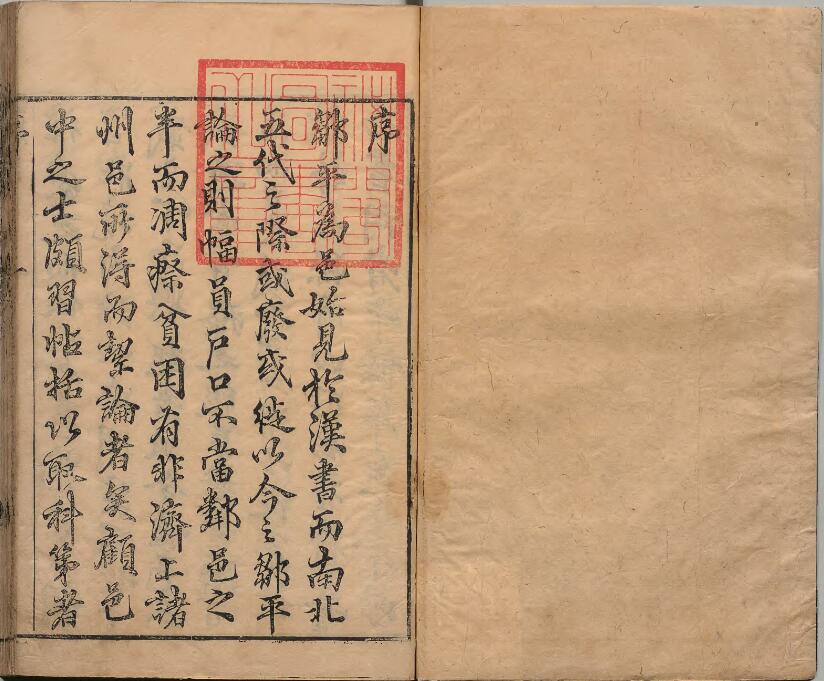 序
鄒平為邑始見於漢書而南北
五代之際或廢或徙以今之鄒平
論之則幅員戶口不當鄰邑之
半而凋瘵貧困有非濟上諸
州邑所得而絜論者矣顧邑
中之士頗習帖括以取科第者